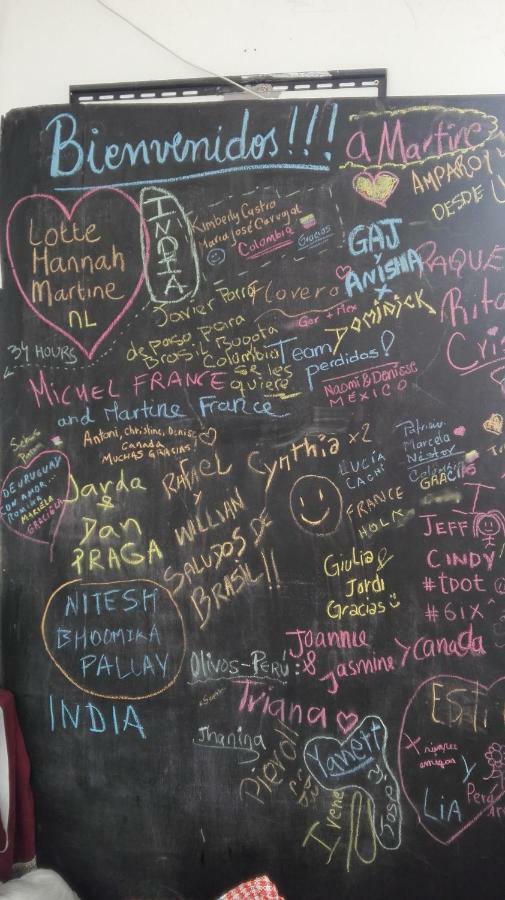 Bienvenidos!!!
a Martine
AMPARO y
DESDE
Lotte
Hannah
Martine
NL
INDIA
Kimberly Castro
Maria José Carvajal
Colombia
Gracias
GAJ
y
ANISHA
RAQUE
Javier Parra
DOMINICK
Rita
Cris
34 HOURS
de paso para
Brasil Bogota
Colombia
se les
quiere
Team
perdidos!
Naomi & Denisse
MÉXICO
MICHEL FRANCE
and Martine France
Antoni, Christine, Denise
Canada
MUCHAS GRACIAS!
DE URUGUAY
CON AMOR...
ROMINA
MARIELA
GRACIELA
Jarda
&
Dan
PRAGA
RAFAEL
y
WILLIAN
SALUDOS DE
BRASIL!!
Cynthia x2
LUCÍA
CACHI
FRANCE
HOLA
Patricia
Marcela
Néstor
Colombia
GRACIAS
I
JEFF
CINDY
#tDOT
#6IX
Giulia &
Jordi
Gracias
NITESH
BHOOMIKA
PALLAY
INDIA
Joannie
&
Jasmine y Canada
Olivos-Perú:
Triana
Jhanina
Pierol
Yanett
y
Jose
Irene
ESTI
amigas
y
LIA
Perú